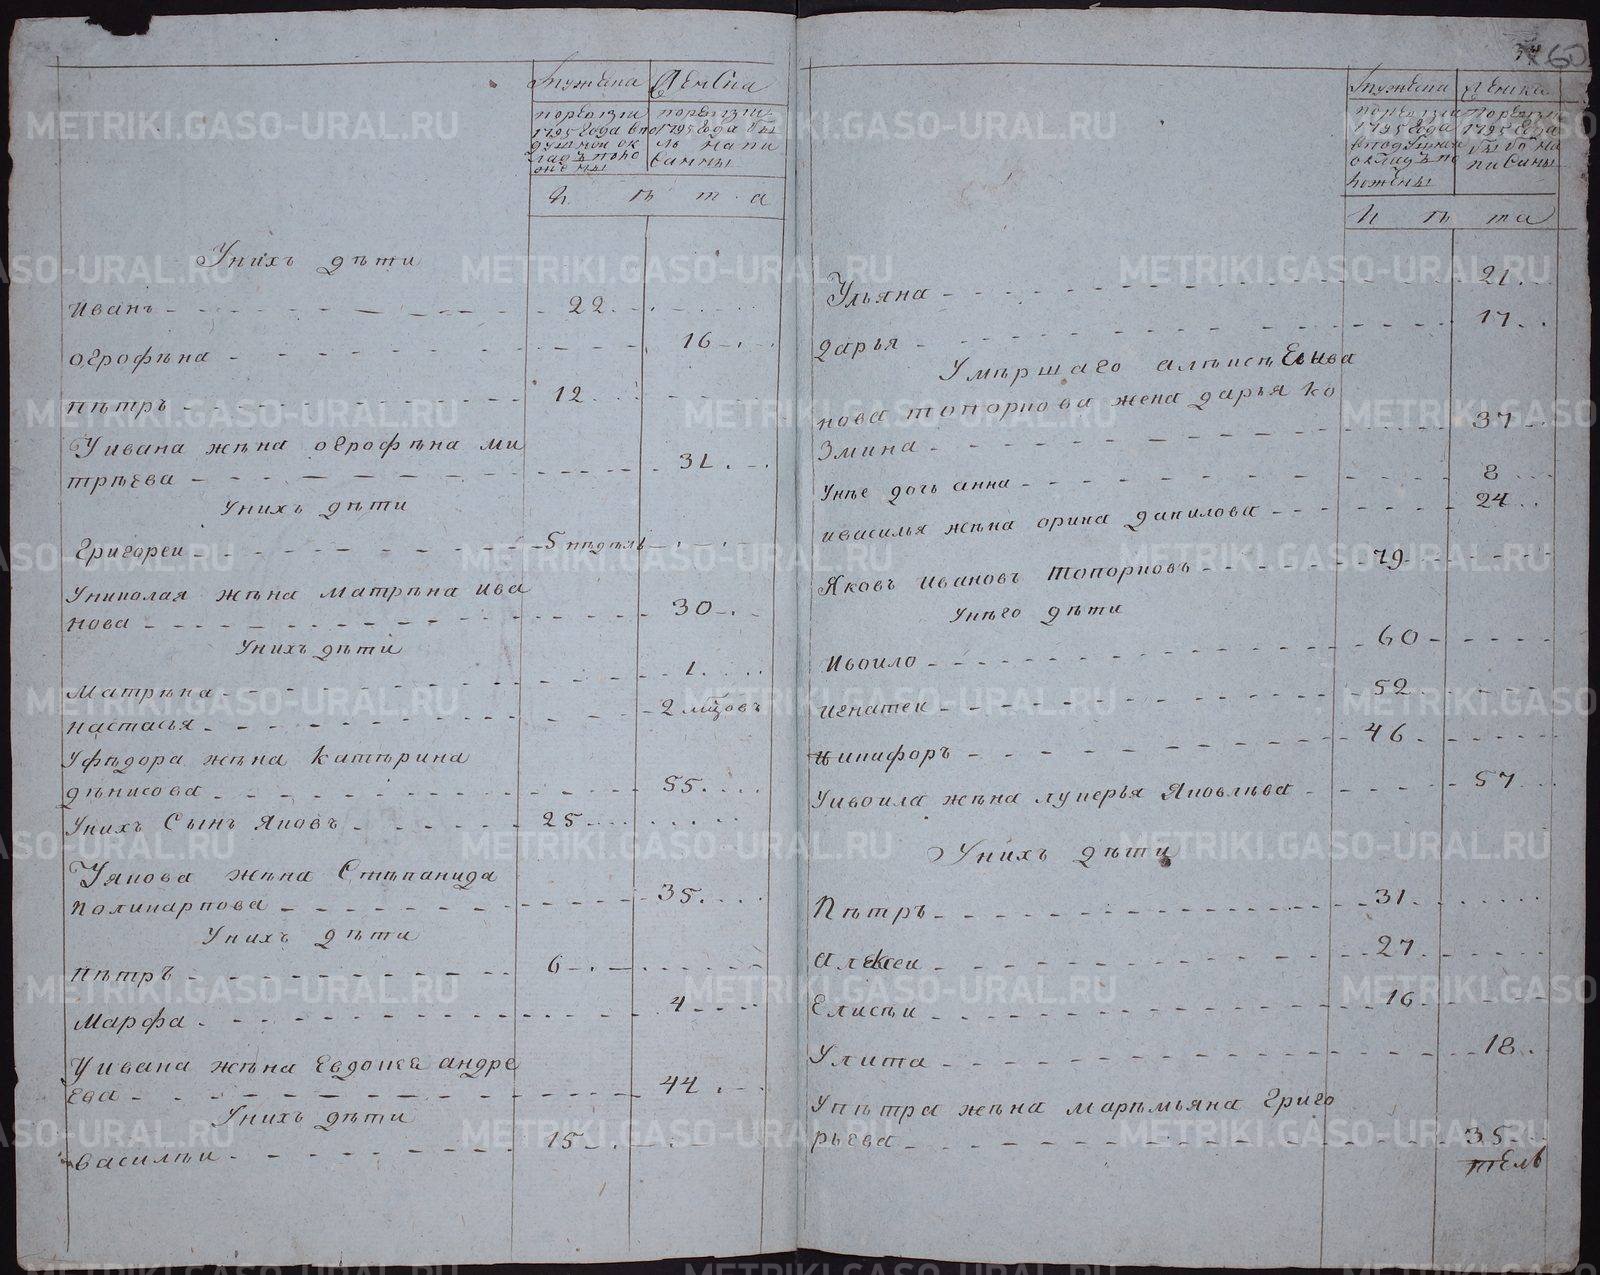 мужеска женска
по ревизии по ревизии
1795 года в по 1795 года бы
душной ок ль напи
ладъ поло санны
жены
л ѣ т а
Унихъ дѣти
иванъ 22
огрофѣна 16
пѣтръ 12
Уивана жѣна огрофѣна ми
трѣева 31
Унихъ дѣти
григореи 5 нѣдѣль
Униколая жѣна матрѣна ива
нова 30
Унихъ дѣти
матрѣна 1
настасья 2 мцовъ
Уфѣдора жѣна катѣрина
дѣнисова 55
Унихъ сынъ яковъ 25
Уякова жѣна стѣпанида
поликарпова 35
Унихъ дѣти
пѣтръ 6
марфа 4
Уивана жѣна Евдокея андре
ева 44
Унихъ дѣти
василѣи 15
60
мужеска женска
по ревизии по ревизии
1795 года 1795 года
вподушнои бы ль на
окладъ по писаны
ложены
л ѣ та
Ульяна 21
дарья 17
Умѣршаго алѣксѣя ива
нова топоркова жена дарья ко
змина 37
Унѣе дочь анна 8
ивасилья жѣна орина данилова 24
Яковъ ивановъ топорковъ 79
Унѣго дѣти
Ивоило 60
игнатеи 52
никифоръ 46
Уивоила жѣна лукерья Яковлѣва 57
Унихъ дѣти
Пѣтръ 31
алексеи 27
Елисѣи 16
Улита 18
Упѣтра жѣна марѣмьяна григо
рьева 35